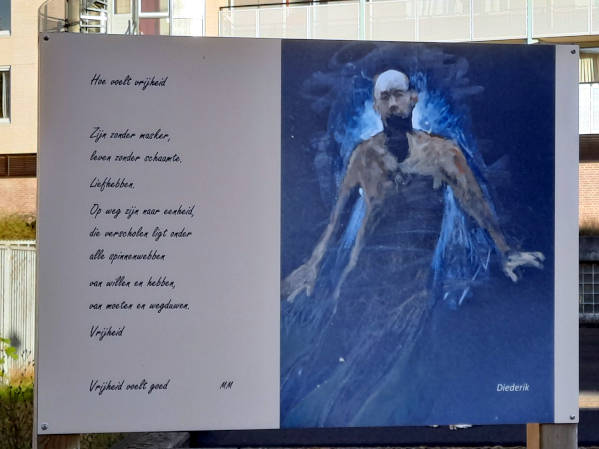 Hoe voelt vrijheid
Zijn zonder masker,
leven zonder schaamte.
Liefhebben.
Op weg zijn naar eenheid,
die verscholen ligt onder
alle spinnenwebben
van willen en hebben,
van moeten en wegduwen.
Vrijheid
Vrijheid voelt goed MM
Diederik